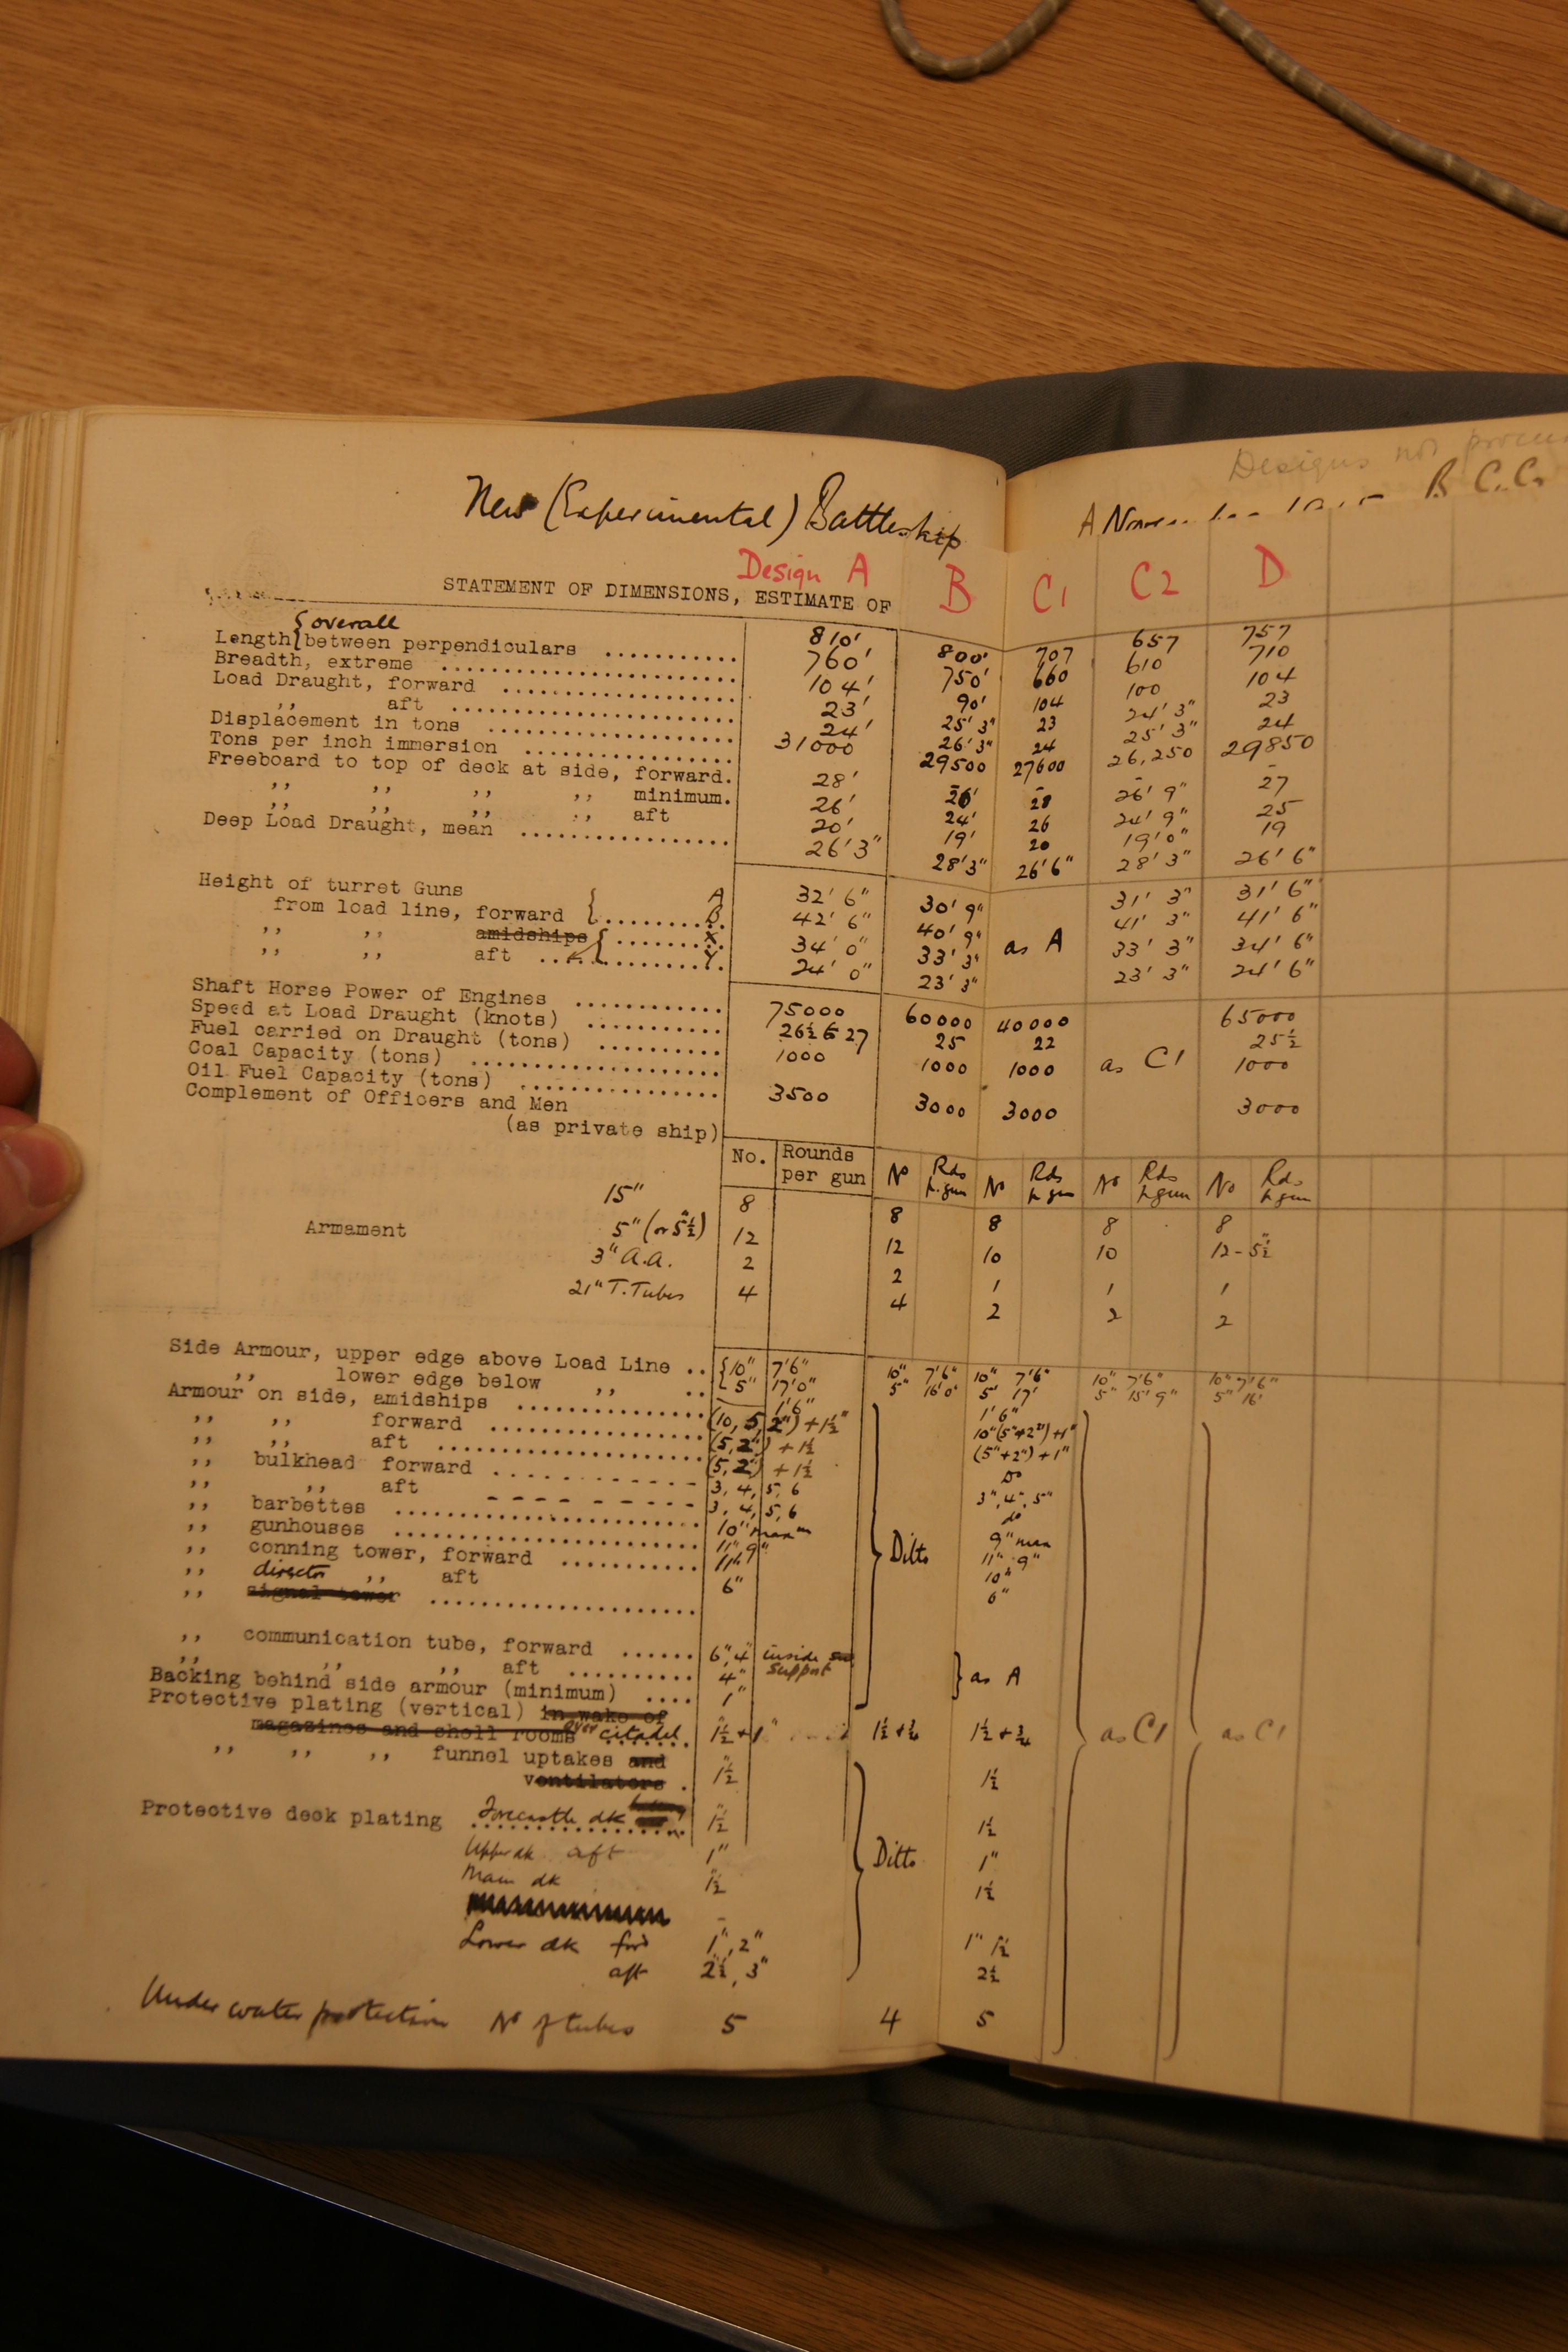 Designs not
New (Experimental) Battleship
A B C.C.
Design A B C1 C2 D
STATEMENT OF DIMENSIONS, ESTIMATE OF
Length { overall 810' 800' 707 657 757
between perpendiculars ........... 760' 750' 660 610 710
Breadth, extreme ........... 104' 90' 104 100 104
Load Draught, forward ........... 23' 25' 3" 23 24' 3" 23
,, aft ........... 24' 26' 3" 24 25' 3" 24
Displacement in tons ........... 31000 29500 27600 26,250 29850
Tons per inch immersion ........... - - - -
Freeboard to top of deck at side, forward. 28' 26' 28 26' 9" 27
,, ,, ,, ,, minimum. 26' 24' 26 24' 9" 25
,, ,, ,, ,, aft 20' 19' 20 19' 0" 19
Deep Load Draught, mean ........... 26' 3" 28' 3" 26' 6" 28' 3" 26' 6"
Height of turret Guns A 32' 6" 30' 9" as A 31' 3" 31' 6"
from load line, forward { ........ B. 42' 6" 40' 9" 41' 3" 41' 6"
,, ,, amidships { ........ X. 34' 0" 33' 3" 33' 3" 34' 6"
,, ,, aft ........ Y. 24' 0" 23' 3" 23' 3" 24' 6"
Shaft Horse Power of Engines ........... 75000 60000 40000 as C1 65000
Speed at Load Draught (knots) ........... 26½ to 27 25 22 25½
Fuel carried on Draught (tons) ........... 1000 1000 1000 1000
Coal Capacity (tons) ...........
Oil Fuel Capacity (tons) ........... 3500 3000 3000 3000
Complement of Officers and Men
(as private ship)
No. Rounds per gun No Rds p. gun No Rds p gun No Rds p gun No Rds p gun
15" 8 8 8 8 8
Armament 5" (or 5½") 12 12 10 10 12 - 5½"
3" A.A. 2 2 1 1 1
21" T. Tubes 4 4 2 2 2
Side Armour, upper edge above Load Line .. { 10" 7'6" 10" 7'6" 10" 7'6" 10" 7'6" 10" 7'6"
5" 17'0" 5" 16'0" 5" 17' 5" 15' 9" 5" 16'
,, lower edge below ,, .. 1'6" 1'6"
Armour on side, amidships ........... (10, 5, 2") + 1½" Ditto 10" (5"+2") +1" as C1 as C1
,, ,, forward ........... (5, 2") + 1½ (5"+2") +1"
,, ,, aft ........... (5, 2") + 1½ Do
,, bulkhead forward ........... 3, 4, 5, 6 3", 4", 5"
,, ,, aft ........... 3, 4, 5, 6 do
,, barbettes ........... 10" maxm 9" max
,, gunhouses ........... 11" 9" 11" 9"
,, conning tower, forward ........... 11" 10"
,, director ,, aft 6" 6"
,, signal tower ...........
,, communication tube, forward ...... 6", 4" inside support } as A
,, ,, ,, aft ........... 4"
Backing behind side armour (minimum) .... 1"
Protective plating (vertical) in wake of
magazines and shell rooms over citadel. 1½"+1" 1½ + ¾ 1½ + ¾
,, ,, ,, funnel uptakes and
ventilators . 1½" Ditto 1½
Protective deck plating Forecastle dk 1½" 1½
Upper dk aft 1" 1"
Main dk 1½" 1½
Lower dk ford 1", 2" 1" 1½
aft 2½, 3" 2½
Under water protection No of tubes 5 4 5